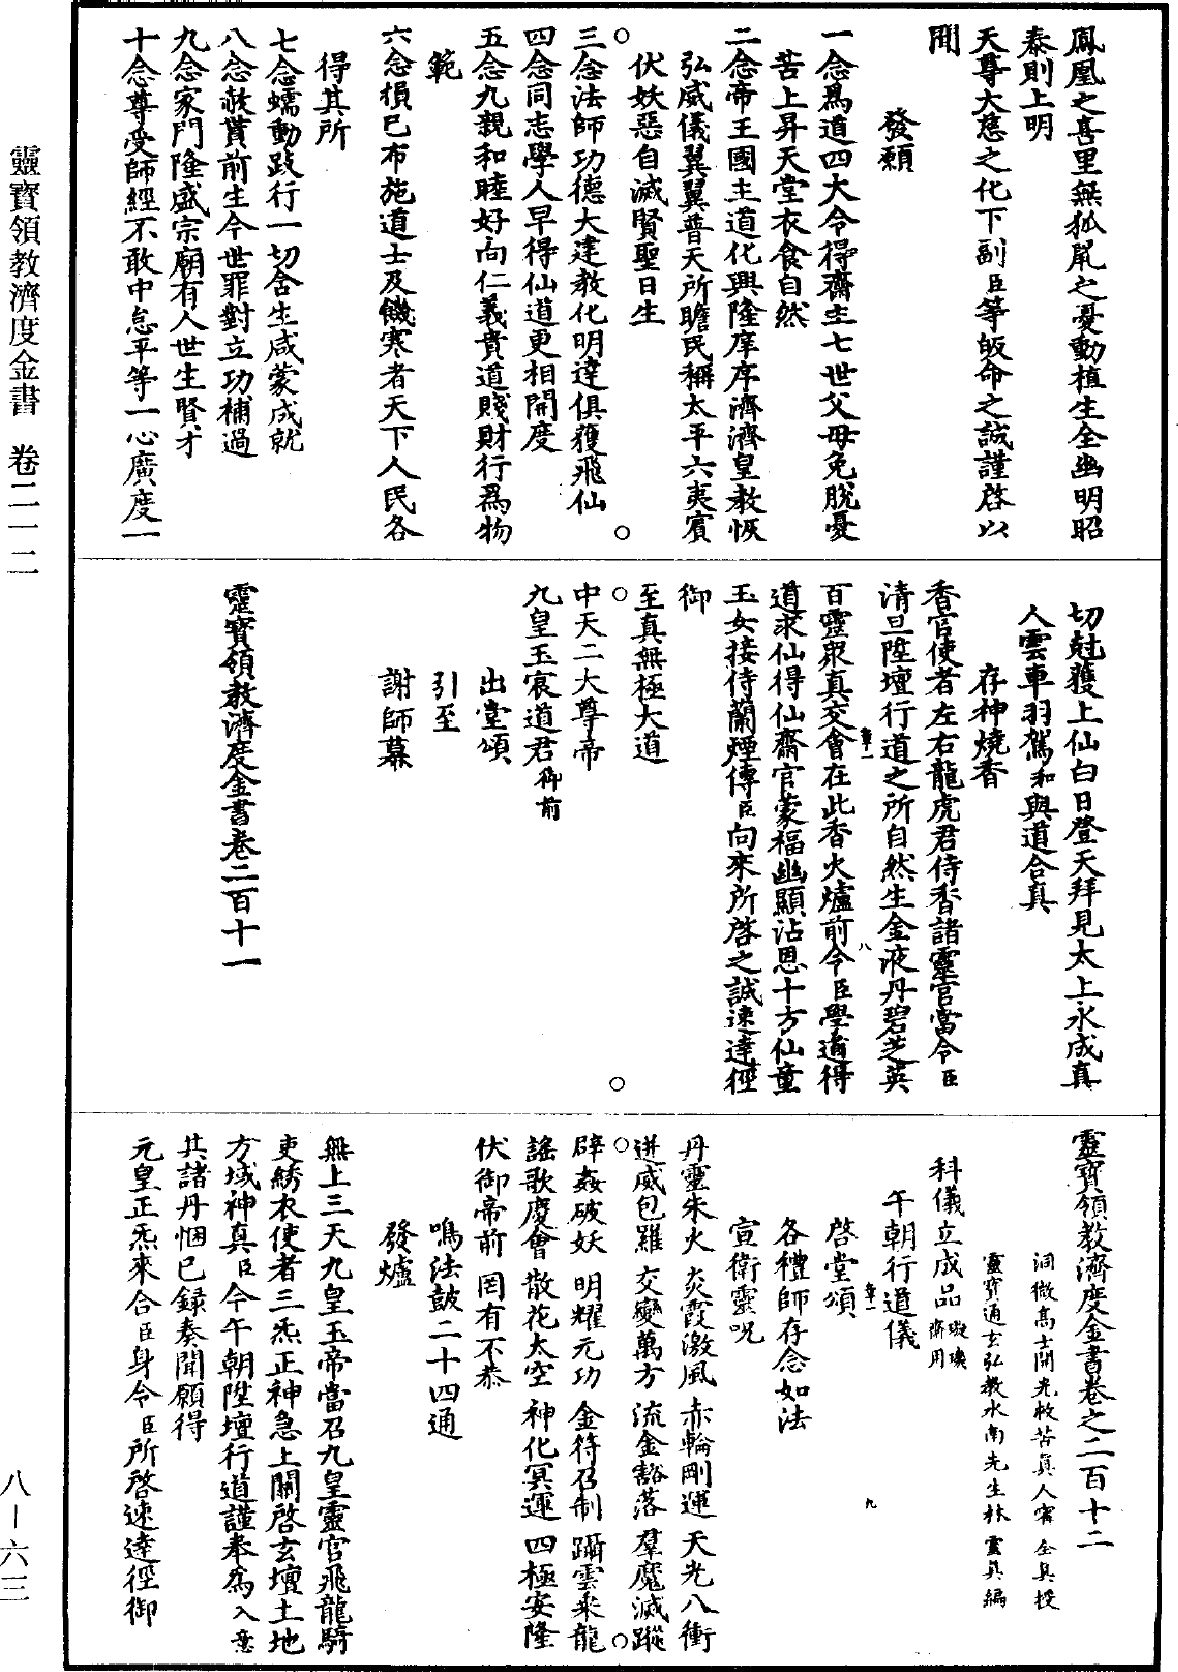 鳳凰之喜里無狐鼠之憂動植生全幽明昭
泰則上明
天尊大慈之化下副臣等皈命之誠謹啓以
聞
發願
一念爲道四大令得齋主七世父母免脫憂
苦上昇天堂衣食自然
二念帝王國主道化興隆庠序濟濟皇教恢
弘威儀翼翼普天所瞻民稱太平六夷賓
伏妖惡自滅賢聖日生
三念法師功德大建教化明達俱獲飛仙
四念同志學人早得仙道更相開度
五念九親和睦好向仁義貴道賤財行爲物
範
六念損己布施道士及饑寒者天下人民各
得其所
七念蠕動跂行一切含生咸蒙成就
八念赦貰前生今世罪對立功補過
九念家門隆盛宗廟有人世生賢才
十念尊受師經不敢中怠平等一心廣度一
切尅獲上仙白日登天拜見太上永成真
人雲車羽駕和與道合真
存神燒香
香官使者左右龍虎君侍香諸靈官當令臣
清旦陞壇行道之所自然生金液丹碧芝英
百靈衆真交會在此香火爐前令臣學道得
道求仙得仙齋官蒙福幽顯沾恩十方仙童
玉女接侍蘭煙傳臣向來所啓之誠速達徑
御
至真無極大道
中天二大尊帝
九皇玉宸道君御前
出堂頌
引至
謝師幕
靈寶領教濟度金書卷二百十一
靈寶領教濟度金書卷之二百十二
洞微高士開光救苦真人甯 全真授
靈寶通玄弘教水南先生林 靈真編
科儀立成品璇璣齋用
午朝行道儀
啓堂頌
各禮師存念如法
宣衛靈咒
丹靈朱火 炎霞激風 赤輪剛運 天光八衝
迸威包羅 交變萬方 流金豁落 羣魔滅蹤
辟姦破妖 明耀元功 金符召制 躡雲乘龍
謠歌慶會 散花太空 神化冥運 四極安隆
伏御帝前 罔有不恭
鳴法鼓二十四通
發爐
無上三天九皇玉帝當召九皇靈官飛龍騎
吏綉衣使者三炁正神急上關啓玄壇土地
方域神真臣今午朝陞壇行道謹奉爲入意
其諸丹悃已錄奏聞願得
元皇正炁來合臣身令臣所啓速達徑御
靈寶領教濟度金書 卷二一二
八—六三